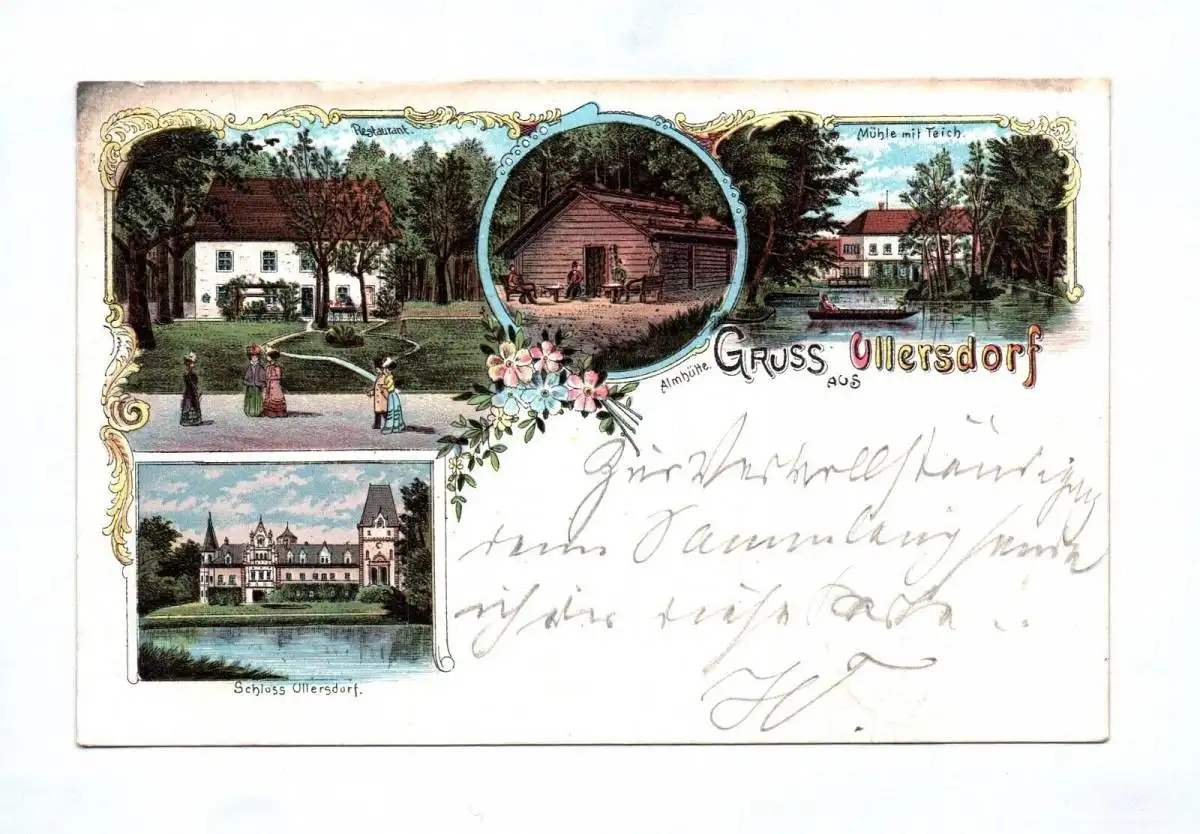 Restaurant.
Mühle mit Teich.
Almhütte.
GRUSS AUS Ullersdorf
Schloss Ullersdorf.
Zur Vervollständigung
deiner Sammlung sende
ich dir diese Karte..